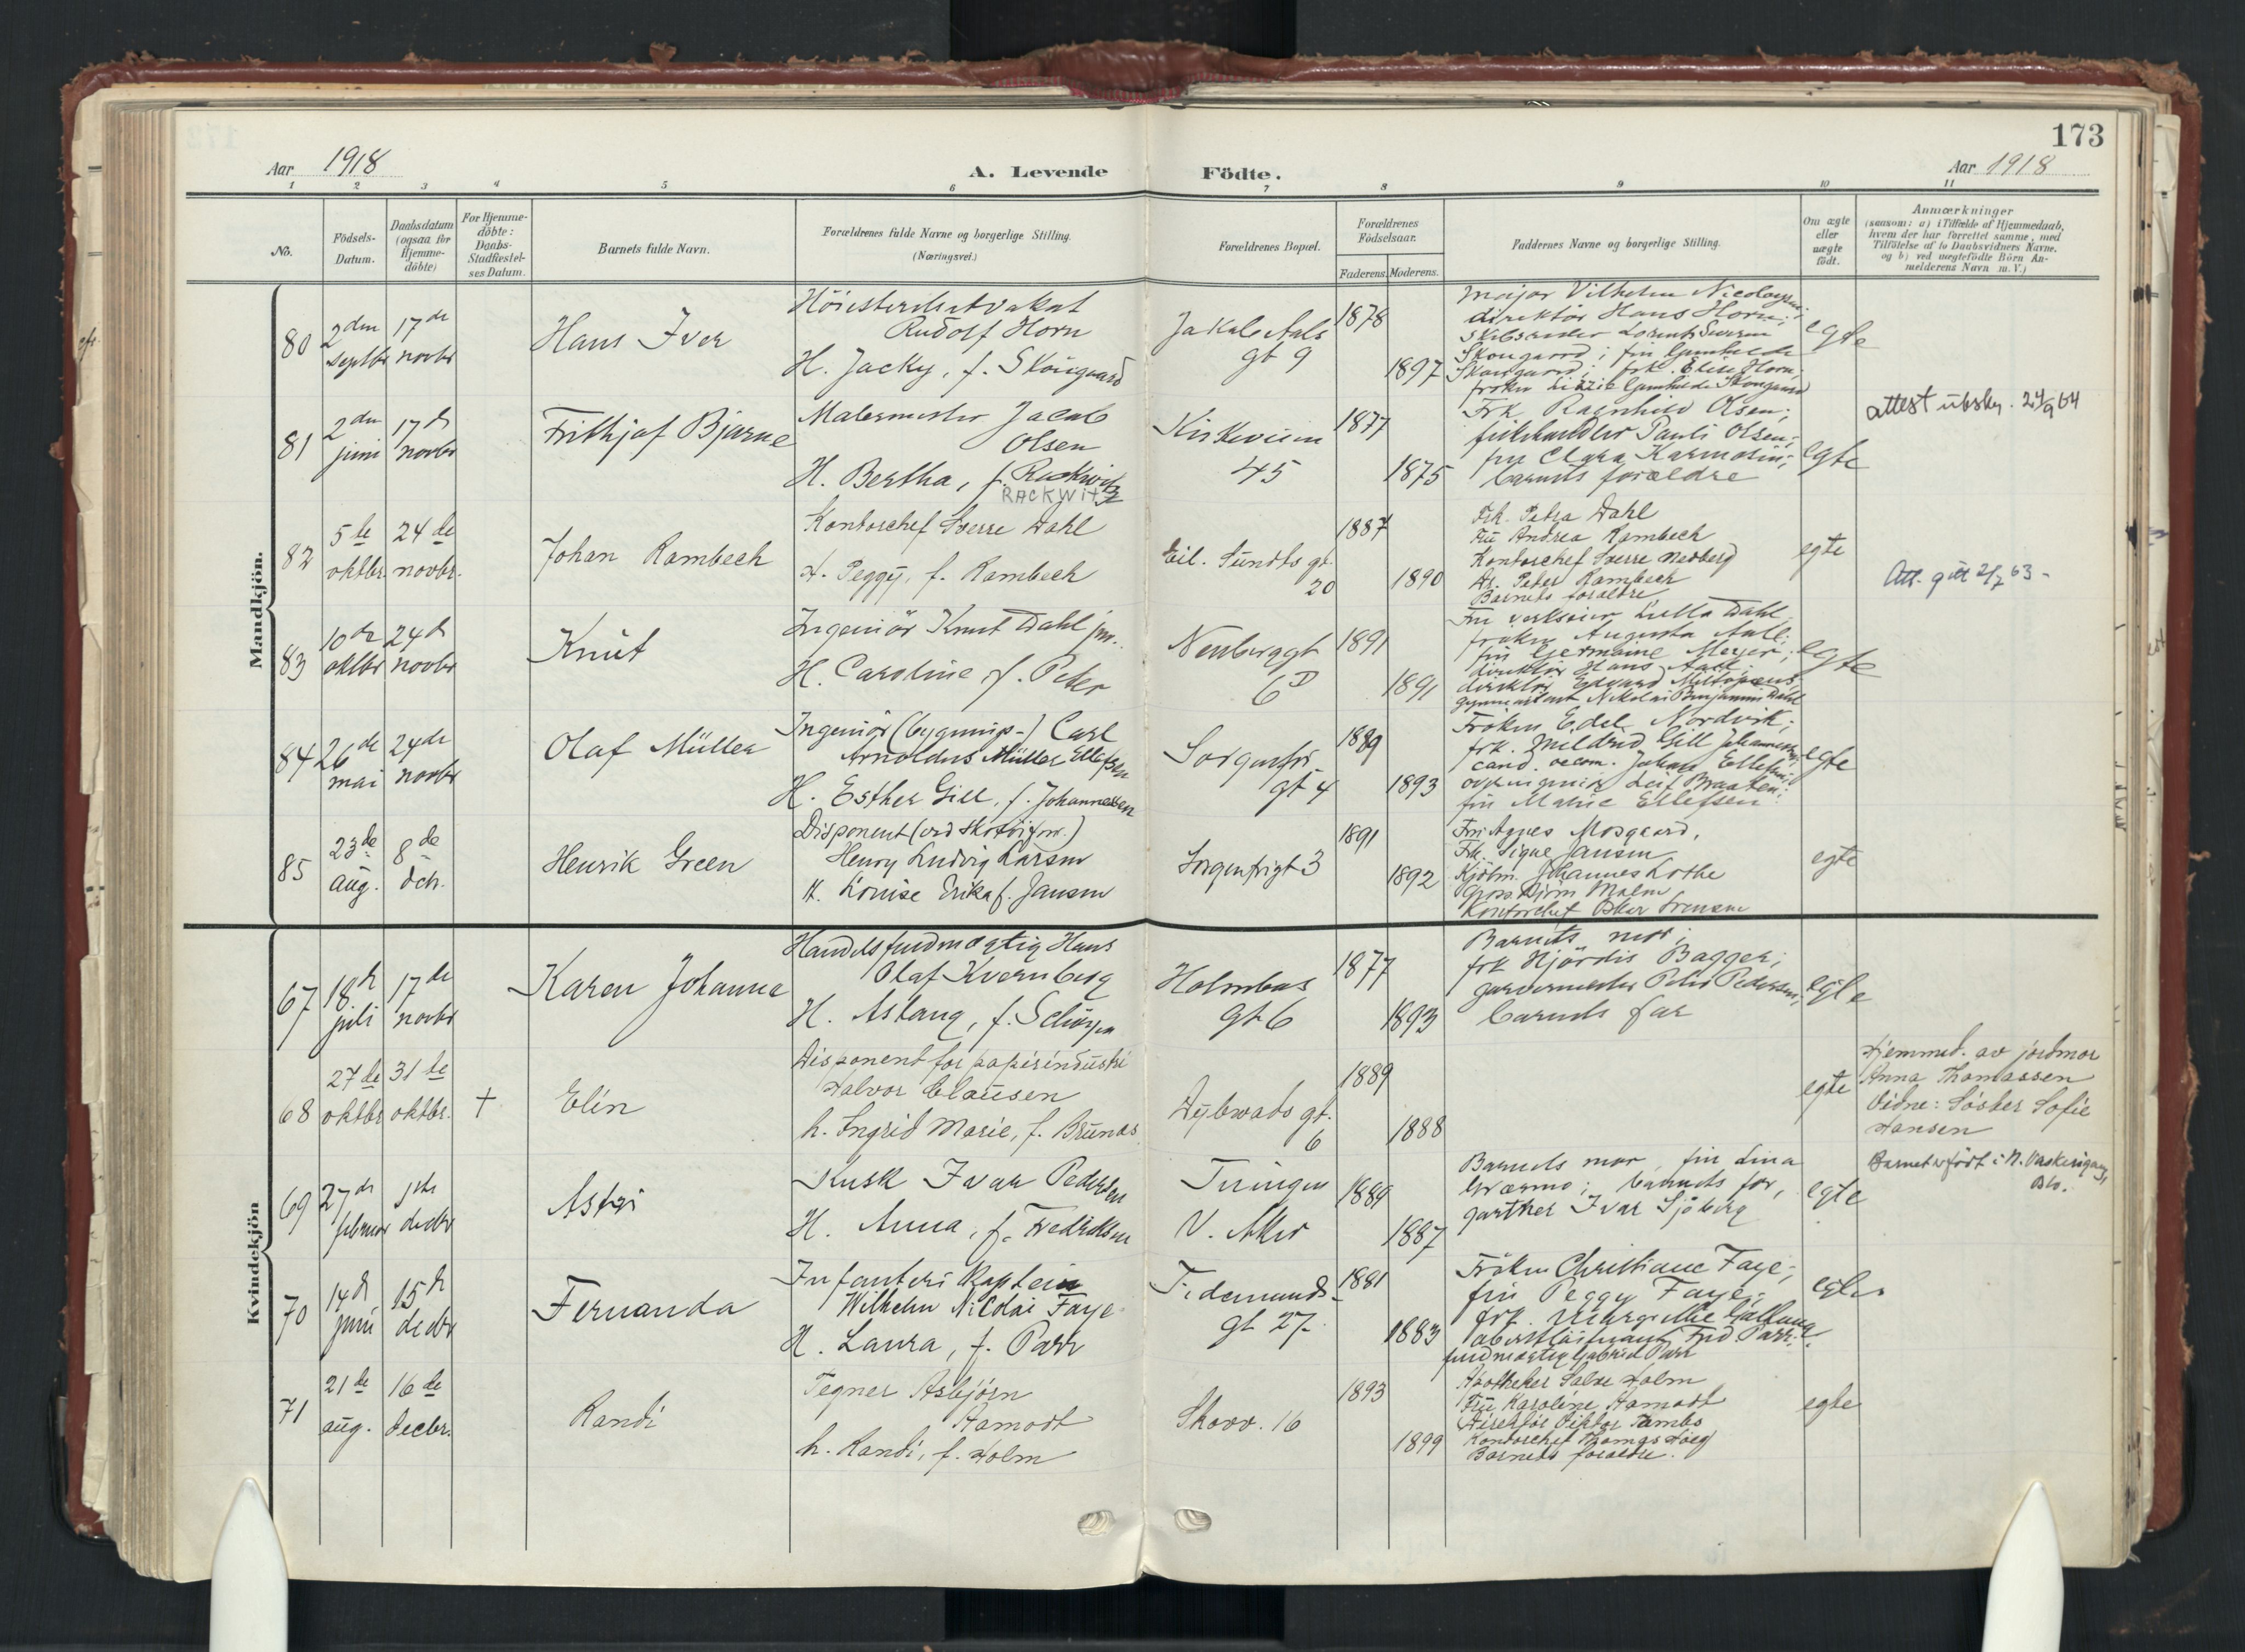 173
Aar 1918
A. Levende Födte.
Aar 1918
1 2 3 4 5 6 7 8 9 10 11
No.
Födsels-Datum.
Daabsdatum (ogsaa for Hjemme-döbte)
For Hjemme-döbte: Daabs-Stadfæstel-ses Datum.
Barnets fulde Navn.
Forældrenes fulde Navne og borgerlige Stilling.
(Næringsvei.)
Forældrenes Bopæl.
Forældrenes Födselsaar.
Faderens. Moderens.
Faddernes Navne og borgerlige Stilling.
Om ægte eller uægte födt.
Anmærkninger
(saasom: a) i Tilfælde af Hjemmedaab,
hvem der har forrettet samme, med
Tilföielse af to Daabsvidners Navne,
og b) ved uægtefödte Börn An-
melderens Navn m. V.)
Mandkjön.
80
2den septbr
17de novbr
Hans Iver
Rudolf Horn
H. Jacky, f. Skougaard
Jakob Aals
gt 9
1878
1897
major Vilhelm Nicolaysen;
direktör Hans Horn;
skibsreder Lorentz
Skougaard; fru Gunhilde
Skougaard; frk. Elise Horn;
fröken Lizzie Gunhilde Skougaard
egte
81
2den juni
17de novbr
Frithjof Bjarne
Malermester Jacob
Olsen
H. Bertha, f. Rackwitz
RACKWITZ
Kirkeveien
45
1877
1875
Frk Ragnhild Olsen;
Pauli Olsen;
fru Clara
barnets forældre
egte
attest utsky. 24/9 64
82
5te oktbr
24de novbr.
Johan Rambech
Kontorchef Sverre Dahl
H. Peggy, f. Rambech
Eil. Sundts gt.
20
1887
1890
Frk. Petra Dahl
Fru Andrea Rambech
Kontorchef Sverre Nedberg
Dr. Peter Rambech
Barnets forældre
egte
Att. gitt 2/7 63 -
83
10de oktbr
24de novbr
Knut
Ingeniör Knut Dahl jnr.
H. Caroline f. Peter
Neuberggt
6D
1891
1891
Fru verkseier Lulla Dahl
fröken Augusta Aall;
fru Germaine Meyer;
direktör Hans Aall;
direktör Edvard
Nikolai Benjamin Dahl
egte
84
26de mai
24de novbr
Olaf Müller
Ingeniör (bygnings-) Carl
Arnoldus Müller Ellefsen
H. Esther Gill, f. Johannessen
Sorgenfri-
gt 4
1889
1893
Fröken Edel Nordvik;
frk. Mildrid Gill Johannessen;
cand. oecon. Johan Ellefsen;
Leif Braaten;
fru Marie Ellefsen
egte
85
23de aug.
8de dcb.
Henrik Green
Disponent (ved skotöiforr.)
Henry Ludvig Larsen
H. Louise Erika f. Jansen
Sorgenfrigt 3
1891
1892
Fru Agnes Mosgaard,
Frk. Signe Jansen
Kjöbm. Johannes Lothe
Gross. Björn Malm
Kontorchef Oskar Svensen
egte
Kvindekjön
67
18de juli
17de novbr
Karen Johanna
Handelsfuldmægtig Hans
Olaf Kvernberg
H. Aslaug, f.
Holmboes
gt 6
1877
1893
Barnets mor;
frk Hjördis Bagger;
garvermester Peter Pedersen;
barnets far
egte
68
27de oktbr
31te oktbr.
+
Elin
Disponent for papirindustri
Halvor Clausen
h. Ingrid Marie, f. Brunæs
Dybwads gt.
6
1889
1888
egte
Hjemmed. av jordmor
Anna Thomassen
Vidne: Söster Sofie
Hansen
69
27de februar
1ste decbr
Astri
Kusk Ivar Pedersen
H. Anna, f. Fredriksen
V. Aker
1889
1887
Barnets mor, fru Lina
barnets far,
gartner Ivar Sjöberg
egte
Barnet er födt i N. Vaskerigang,
Blo.
70
14de juni
15de decbr
Fernanda
Infanteri kaptein
Wilhelm Nicolai Faye
H. Laura, f. Parr
Tidemands-
gt 27.
1881
1883
Fröken Christiane Faye;
fru Peggy Faye;
frk. Margrethe
oberstlöitnant Frd Parr;
fuldmægtig Gabriel Parr
egte
71
21de aug.
16de decbr.
Randi
Tegner Asbjörn
Aamodt
h. Randi, f. Holm
Skovv. 16
1893
1899
Apotheker Salve Holm
Fru Karoline Aamodt
Direktör Viktor Tambs
Kontorchef Thomas Höeg
Barnets forældre.
egte